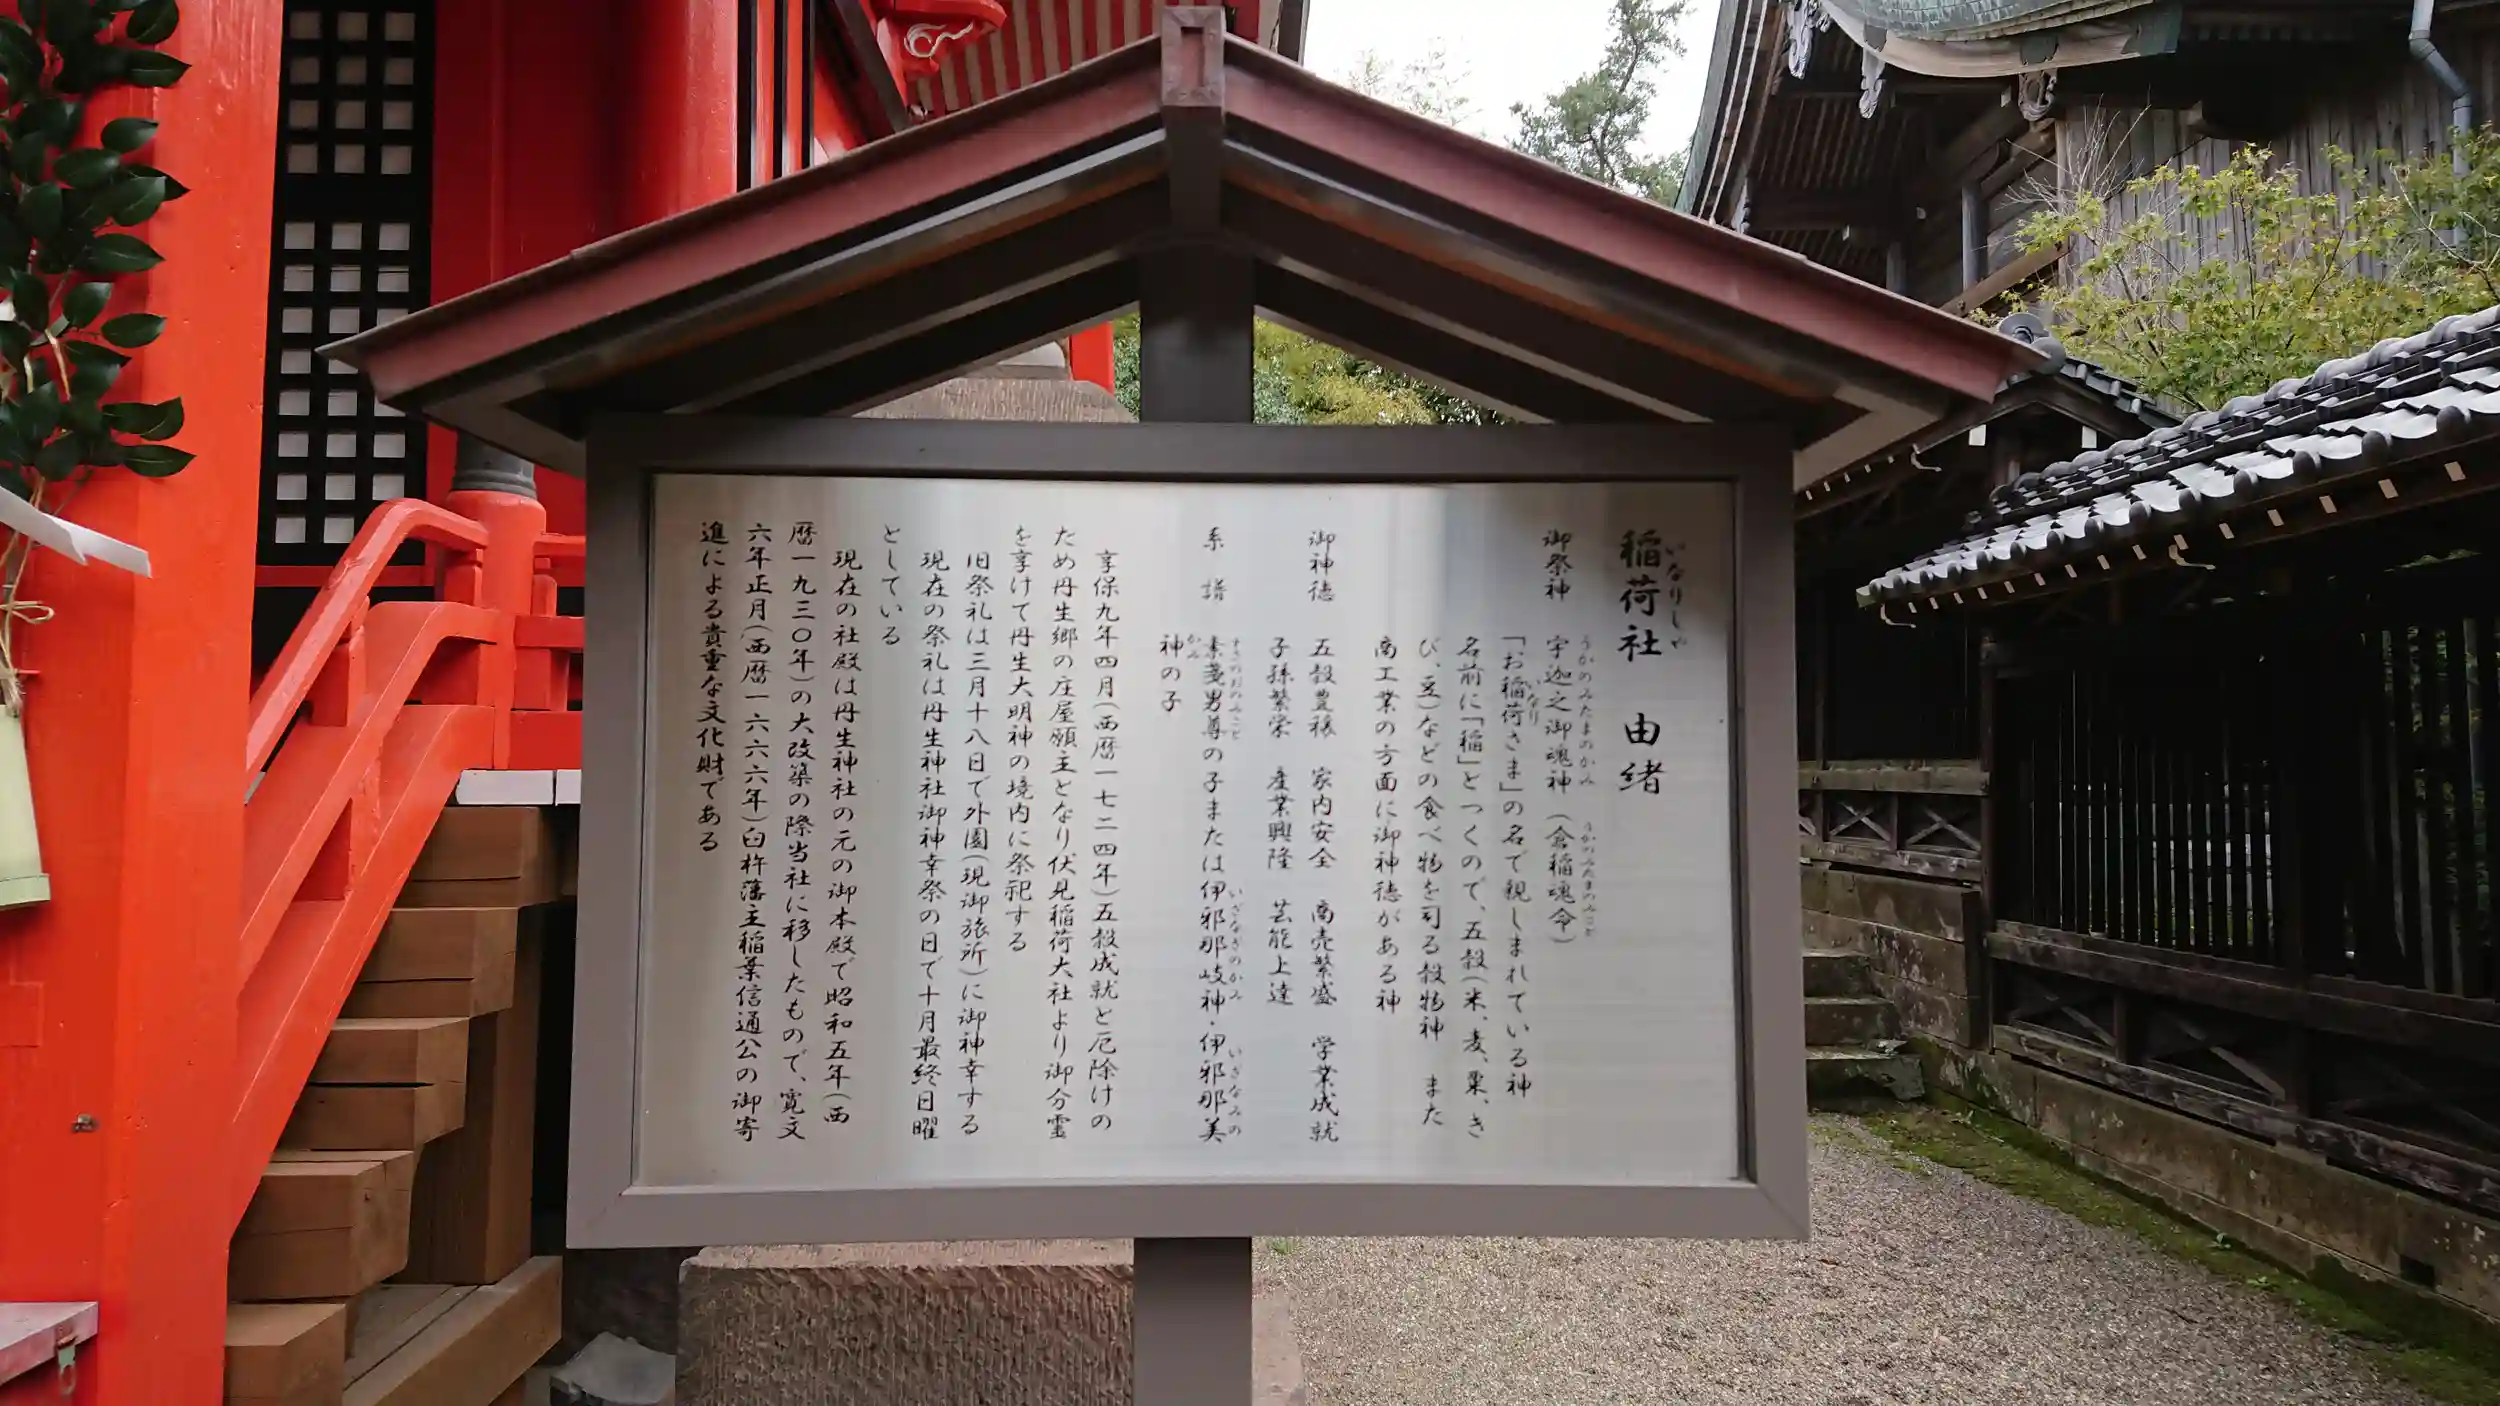 稲荷社 由緒
いなりしゃ
御祭神 宇迦之御魂神(倉稲魂命)
うかのみたまのかみ うかのみたまのみこと
「お稲荷さま」の名で親しまれている神
いなり
名前に「稲」とつくので、五穀(米、麦、粟、き
び、豆)などの食べ物を司る穀物神 また
商工業の方面に御神徳がある神
御神徳 五穀豊穣 家内安全 商売繁盛 学業成就
子孫繁栄 産業興隆 芸能上達
系譜 素戔男尊の子または伊邪那岐神・伊邪那美
すさのおのみこと いざなぎのかみ いざなみの
神の子
かみ
享保九年四月(西暦一七二四年)五穀成就と厄除けの
ため丹生郷の庄屋願主となり伏見稲荷大社より御分霊
を享けて丹生大明神の境内に祭祀する
旧祭礼は三月十八日で外園(現御旅所)に御神幸する
現在の祭礼は丹生神社御神幸祭の日で十月最終日曜
としている
現在の社殿は丹生神社の元の御本殿で昭和五年(西
暦一九三〇年)の大改築の際当社に移したもので、寛文
六年正月(西暦一六六六年)臼杵藩主稲葉信通公の御寄
進による貴重な文化財である